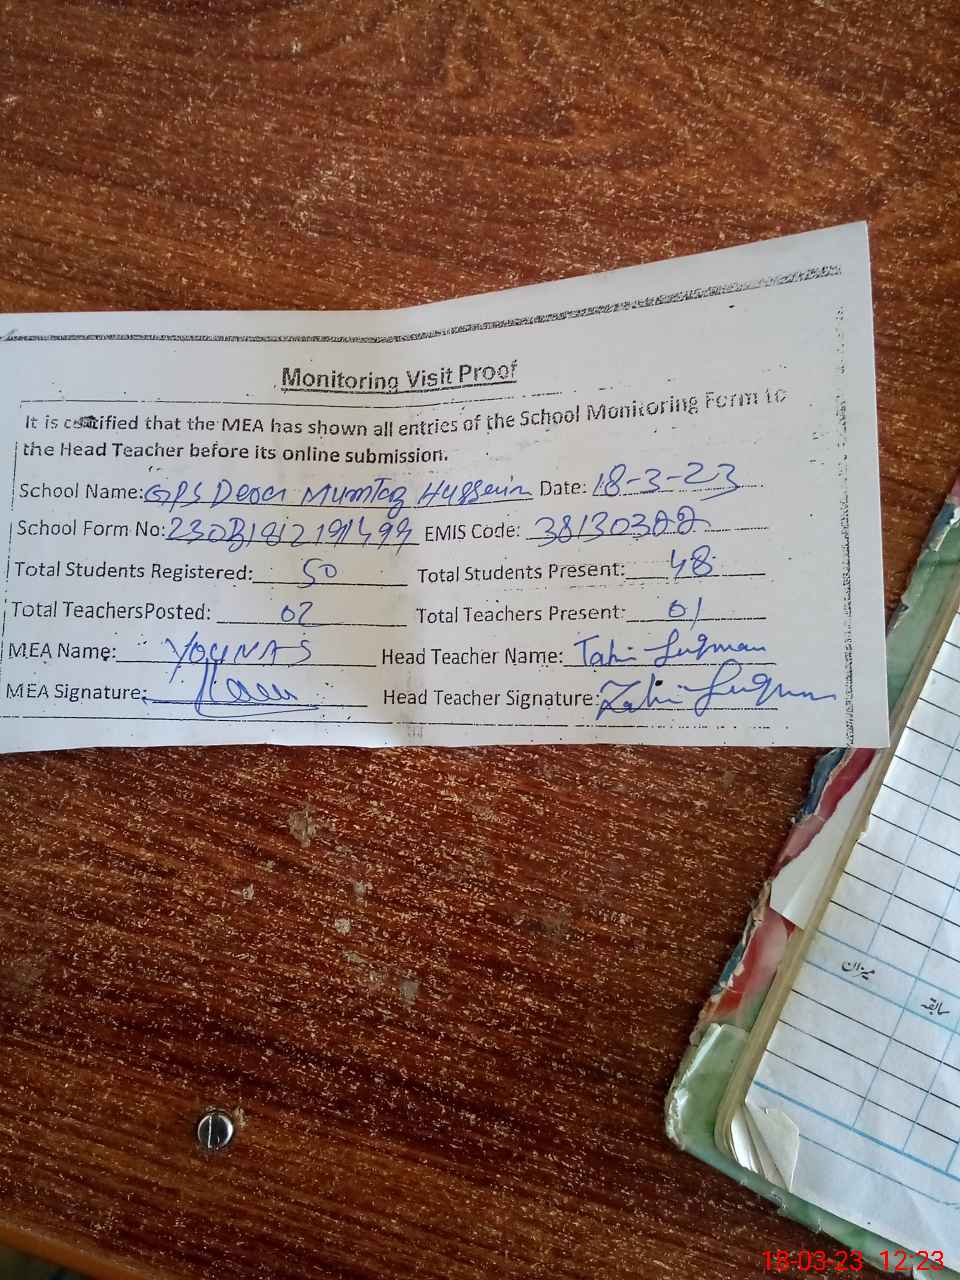 Monitoring Visit Proof
It is certified that the MEA has shown all entries of the School Monitoring Form to
the Head Teacher before its online submission.
School Name: GPS Deoa Mumtaz Hussain Date: 18-3-23
School Form No: EMIS Code:
Total Students Registered: 50 Total Students Present: 48
Total TeachersPosted: 02 Total Teachers Present: 01
MEA Name: YOUNAS Head Teacher Name: Tahir Luqman
MEA Signature: Head Teacher Signature: Tahir Luqman
میزان
سابقہ
18-03-23 12:23